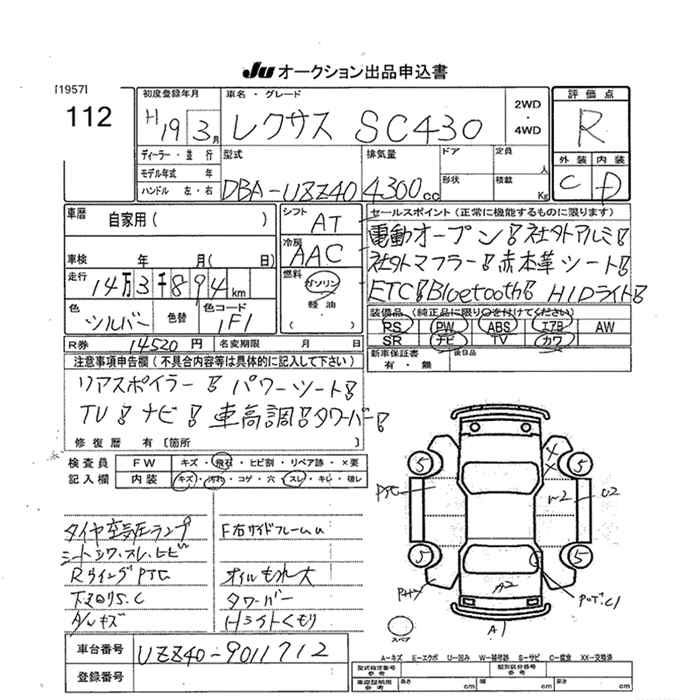 JU オークション出品申込書
[1957]
112
初度登録年月
H 19 3月
車名・グレード
レクサス SC430
2WD
・
4WD
評価点
R
外装 内装
C D
ディーラー・並行
モデル年式 年
ハンドル 左・右
型式
DBA-UZZ40
排気量
4300cc
ドア
形状
定員
人
積載
Kg
車歴
自家用( )
車検 年 月( 日)
走行 14万3千894km
色 シルバー
色替
色コード 1F1
シフト AT
冷房 AAC
燃料 ガソリン
軽油
( )
セールスポイント(正常に機能するものに限ります)
電動オープン! 社外アルミ!
社外マフラー! 赤本革シート!
ETC! Bluetooth! HIDライト!
装備品(純正品に限り○を付けてください)
PS PW ABS エアB AW
SR ナビ TV カワ
新車保証書
有・無
後日品
R券 14520円
名変期限 月 日
注意事項申告欄(不具合内容等は具体的に記入して下さい)
リアスポイラー! パワーシート!
TV! ナビ! 車高調! タワーバー!
修復歴 有〔箇所 〕
検査員 FW キズ・飛石・ヒビ割・リペア跡・×要
記入欄 内装 キズ・汚れ・コゲ・穴・スレ・キレ・破レ
タイヤ空気圧ランプ
シートシワ・スレ・ヒビ
F右サイドフレームu
オイルもれ大
タワーバー
Hライトくもり
A/Wキズ
5 5
5 5
W2 U2
A2
A1
スペア
A—キズ E—エクボ U—凹み W—補修跡 S—サビ C—腐食 XX—交換済
車台番号 UZZ40-9011712
登録番号
型式指定番号
参考
類別区分番号
参考
車庫証明用
参考
長さ cm
幅 cm
高さ cm